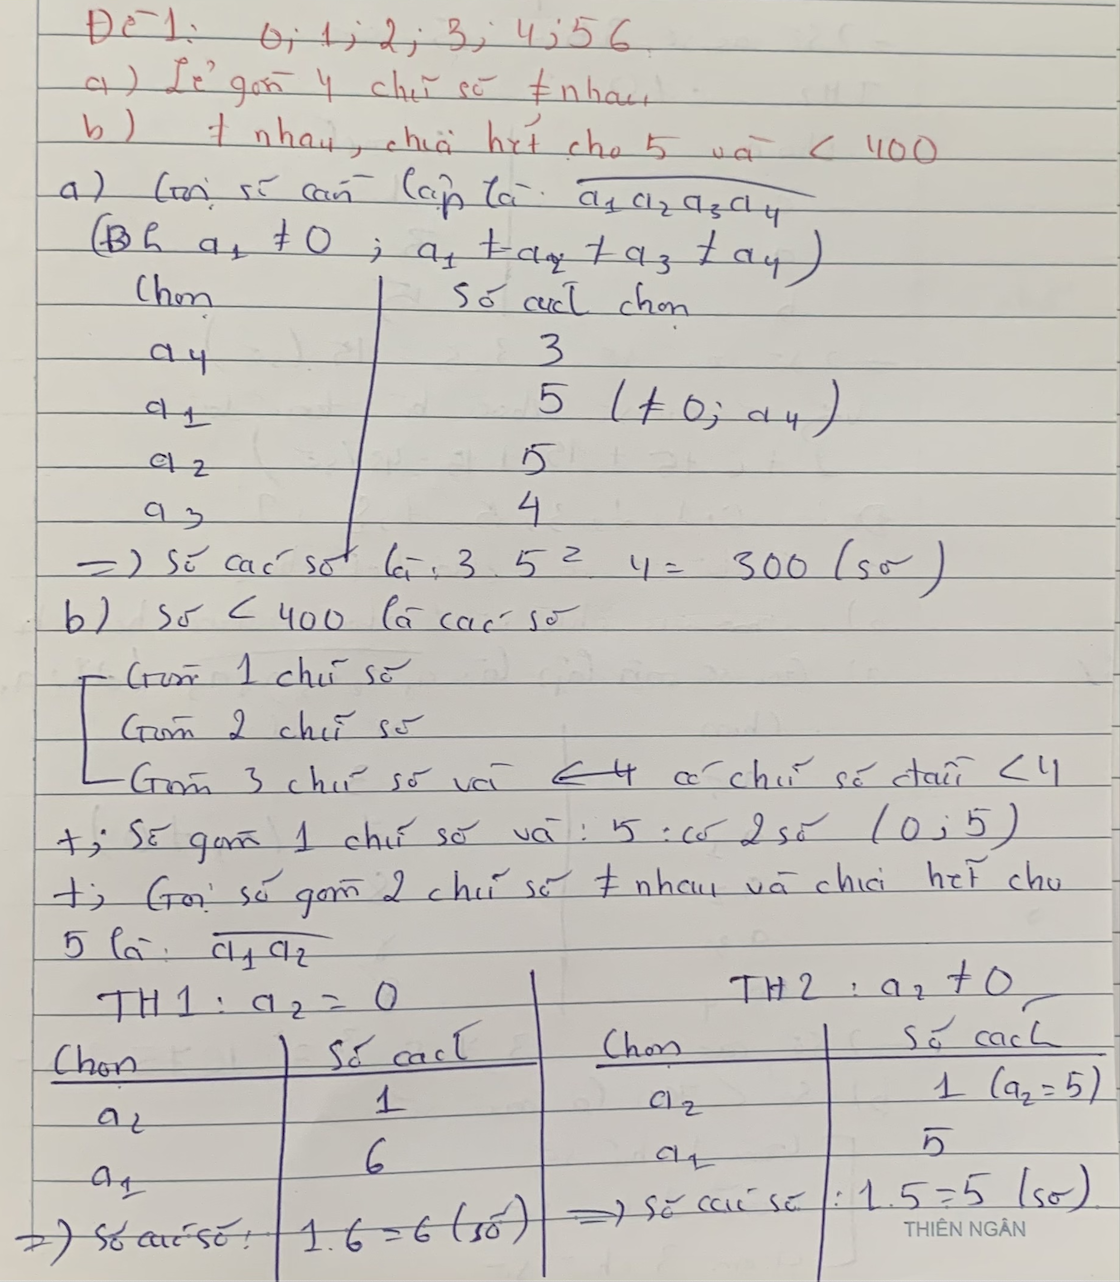 Đề 1: 0; 1; 2; 3; 4; 5 6
a) Lẻ gồm 4 chữ số ≠ nhau.
b) ≠ nhau, chia hết cho 5 và < 400
a) Gọi số cần lập là: a1a2a3a4
(Đk a1 ≠ 0 ; a1 ≠ a2 ≠ a3 ≠ a4)
Chọn Số cách chọn
a4 3
a1 5 (≠ 0; a4)
a2 5
a3 4
=> Số các số là: 3.5² 4 = 300 (số)
b) Số < 400 là các số
Gồm 1 chữ số
Gồm 2 chữ số
Gồm 3 chữ số và <4 có chữ số đầu < 4
+; Số gồm 1 chữ số và ⋮ 5 : có 2 số (0; 5)
+; Gọi số gồm 2 chữ số ≠ nhau và chia hết cho
5 là: a1a2
TH1: a2 = 0 TH2 : a2 ≠ 0
Chọn Số cách Chọn Số cách
a2 1 a2 1 (a2 = 5)
a1 6 a1 5
=> Số các số: 1.6 = 6 (số) => Số các số : 1.5 = 5 (số)
THIÊN NGÂN